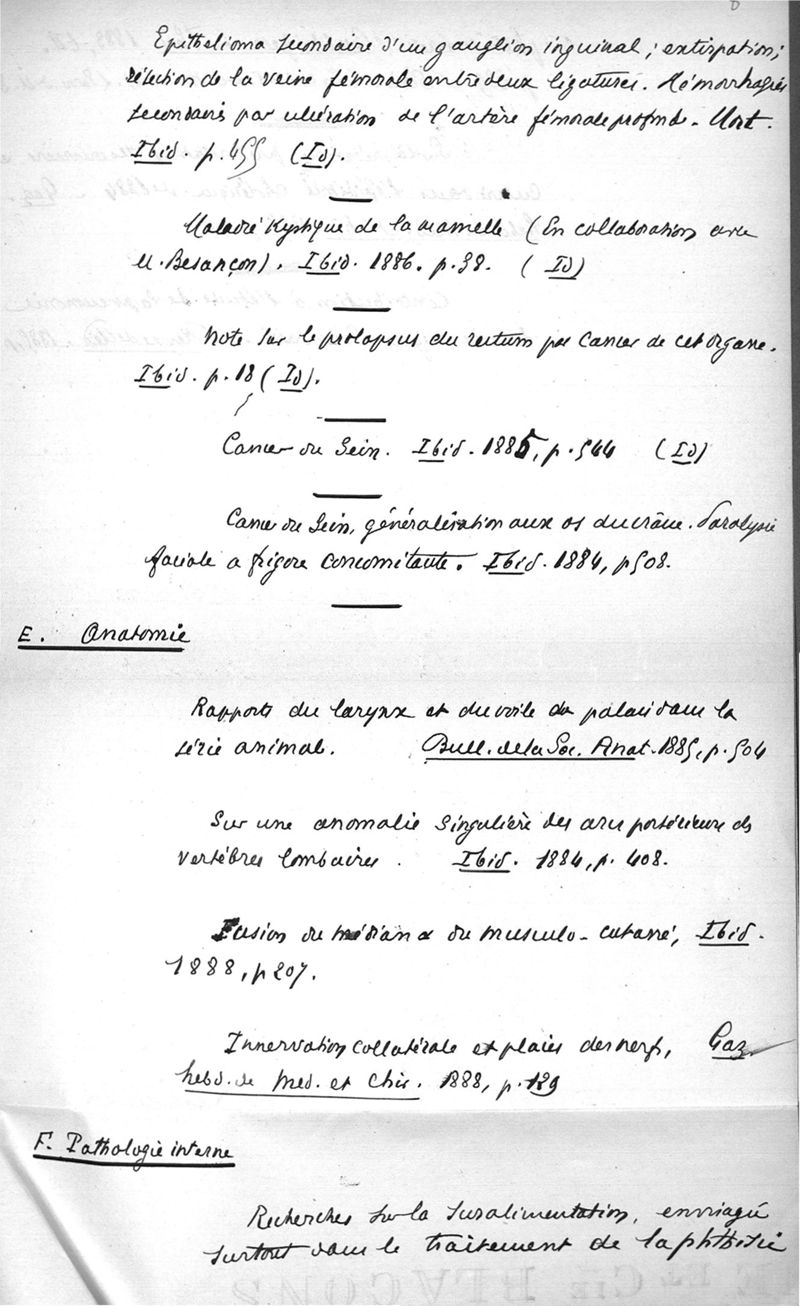 Epithelioma secondaire d'un ganglion inguinal ; extirpation ;
résection de la veine fémorale entre deux ligatures. Hémorrhagies
secondaires par ulcération de l'artère fémorale profonde. Mort.
Ibid. p. 455 (Id).
Maladie Kystique de la mamelle (En collaboration avec
M. Besançon). Ibid. 1886. p. 38. (Id)
Note sur le prolapsus du rectum par cancer de cet organe.
Ibid. p. 18 (Id).
Cancer du Sein. Ibid. 1885, p. 544 (Id)
Cancer du Sein, généralisation aux os du crâne. Paralysie
faciale a frigore concomitante. Ibid. 1884, p 508.
E. Anatomie
Rapports du larynx et du voile du palais dans la
série animale. Bull. de la Soc. Anat. 1885, p. 504
Sur une anomalie singulière des arcs postérieurs des
vertèbres lombaires. Ibid. 1884, p. 408.
Fusion du médian & du musculo-cutané, Ibid.
1888, p 207.
Innervation collatérale et plaies des nerfs, Gaz.
hebd. de Med. et Chir. 1888, p. 129
F. Pathologie interne
Recherches sur la suralimentation, envisagée
surtout dans le traitement de la phthisie